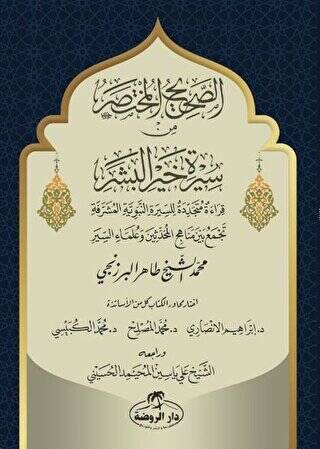 الصَّحِيحُ المُخْتَصَرُ
مِن
سِيرَةِ خَيْرِ البَشَرِ
قِرَاءَةٌ مُتَجَدِّدَةٌ لِلسِّيرَةِ النَّبَوِيَّةِ المُشَرَّفَةِ
تَجْمَعُ بَيْنَ مَنَاهِجِ المُحَدِّثِينَ وَعُلَمَاءِ السِّيَرِ
محمد الشيخ طاهر البرزنجي
اختار محاور الكتاب كل من الأساتذة
د. إبراهيم الأنصاري د. محمد المصلح د. محمد الكبيسي
وراجعه
الشيخ علي ياسين المحيمد الحسيني
دار الروضة